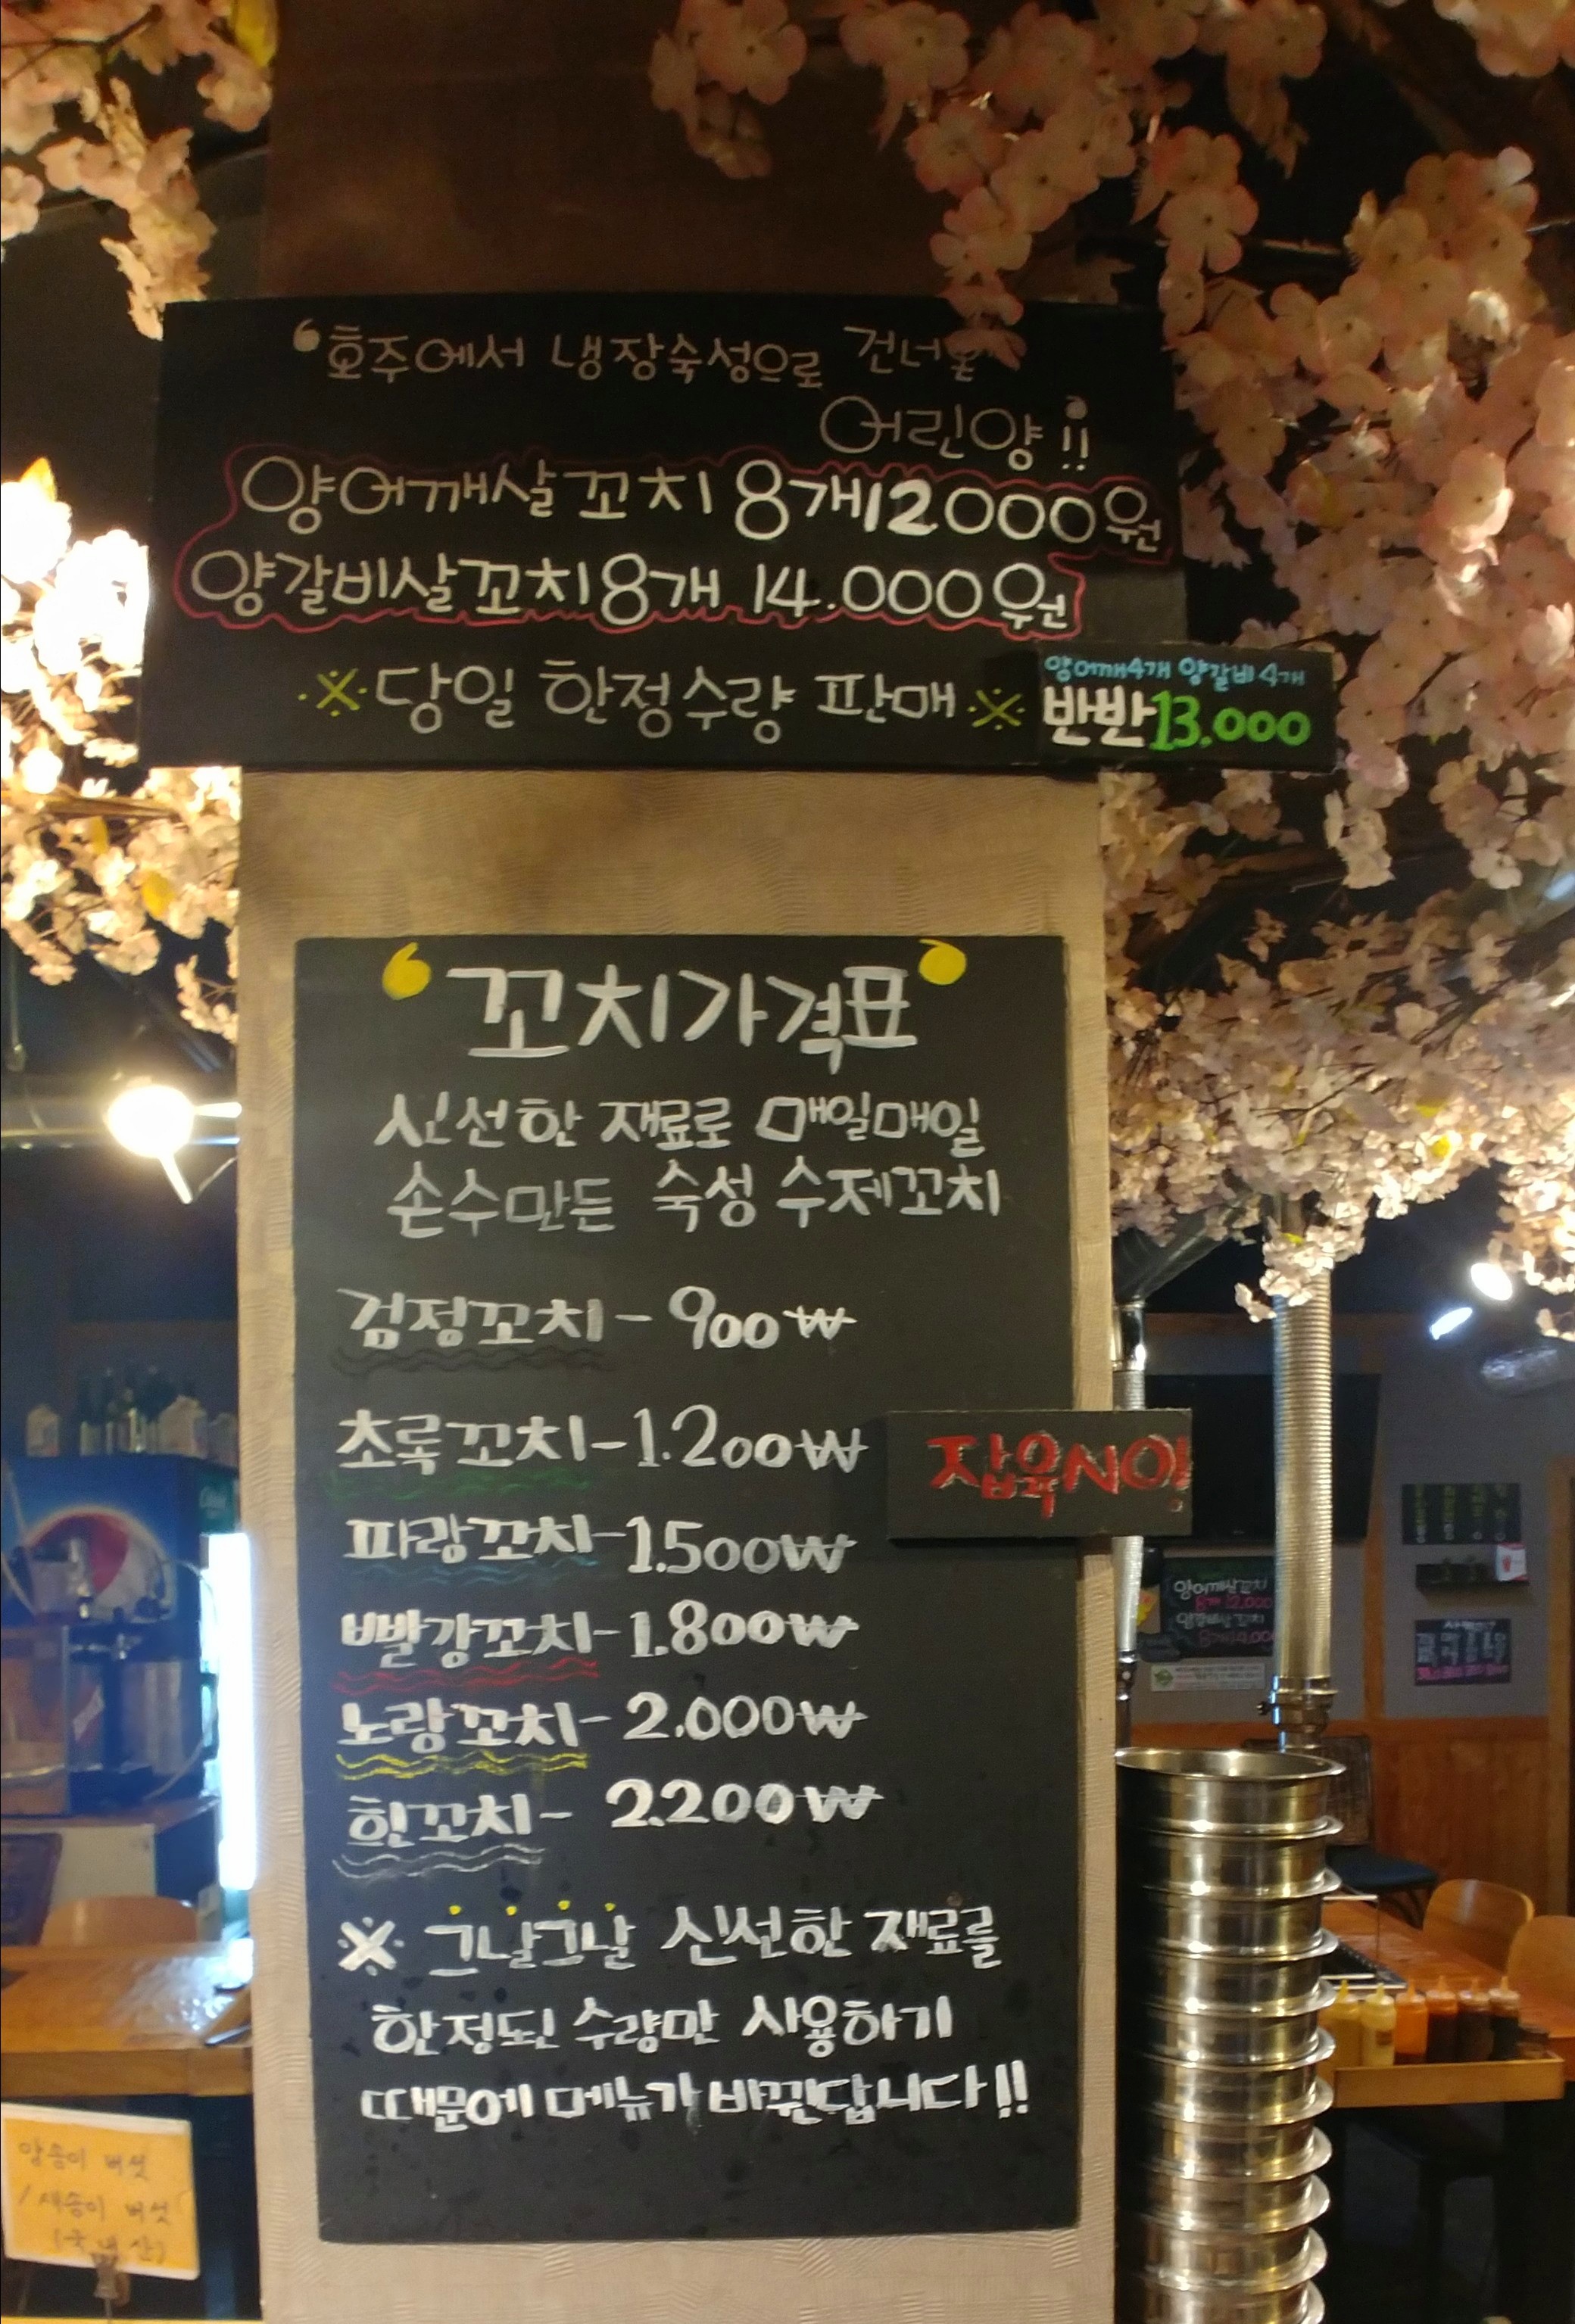 ‘호주에서 냉장숙성으로 건너온
어린양!!’
양어깨살꼬치 8개 12000원
양갈비살꼬치 8개 14.000원
※당일 한정수량 판매※
양어깨4개 양갈비4개
반반 13.000
‘꼬치가격표’
신선한 재료로 매일매일
손수만든 숙성 수제꼬치
검정꼬치 - 900₩
초록꼬치 - 1.200₩
잡육NO!
파랑꼬치 - 1.500₩
빨강꼬치 - 1.800₩
노랑꼬치 - 2.000₩
흰꼬치 - 2.200₩
※ 그날그날 신선한 재료를
한정된 수량만 사용하기
때문에 메뉴가 바뀐답니다!!
양어깨살꼬치
8개 12,000
양갈비살꼬치
양송이 버섯
/ 새송이 버섯
(국내산)